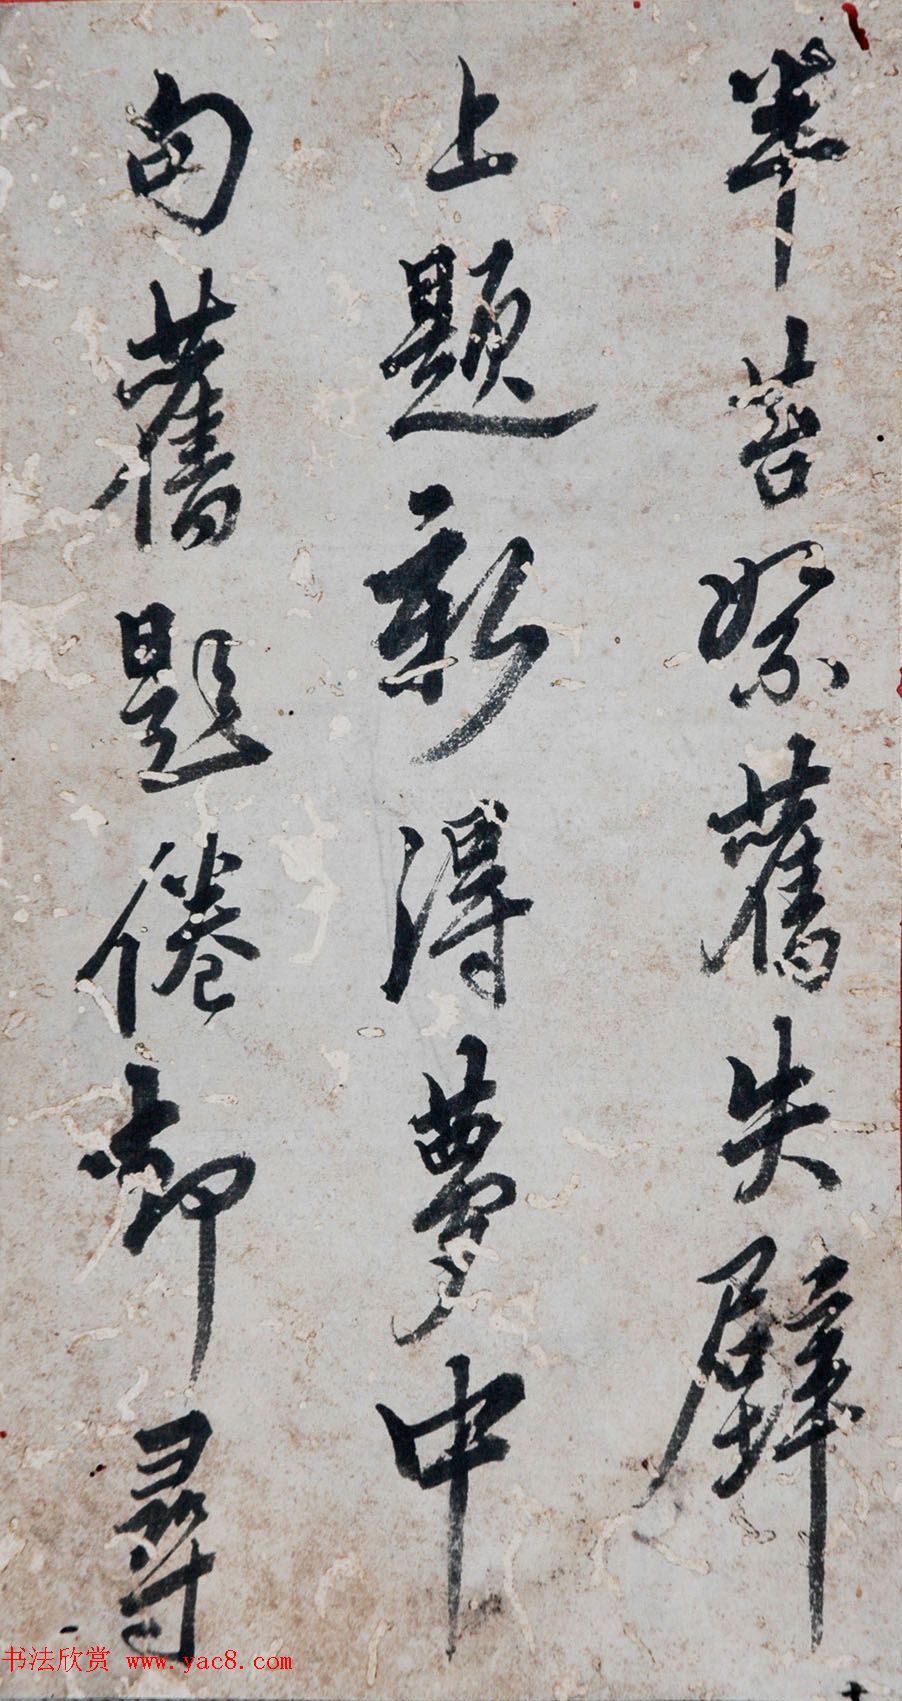 半菩絮舊失壁
上題新得夢中
句舊題倦卻尋
书法欣赏 www.yac8.com